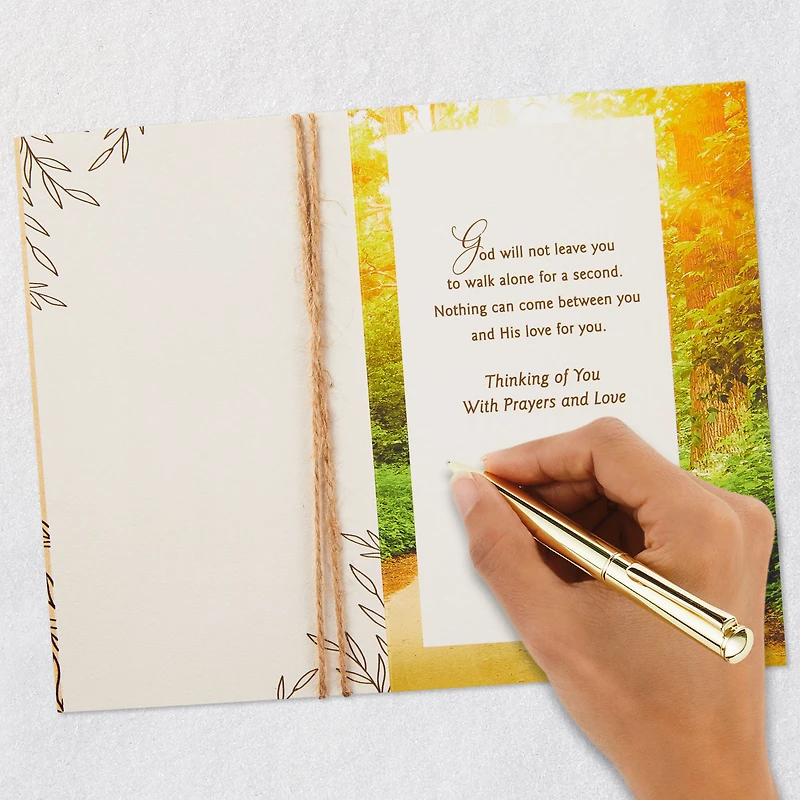 God will not leave you
to walk alone for a second.
Nothing can come between you
and His love for you.
Thinking of You
With Prayers and Love